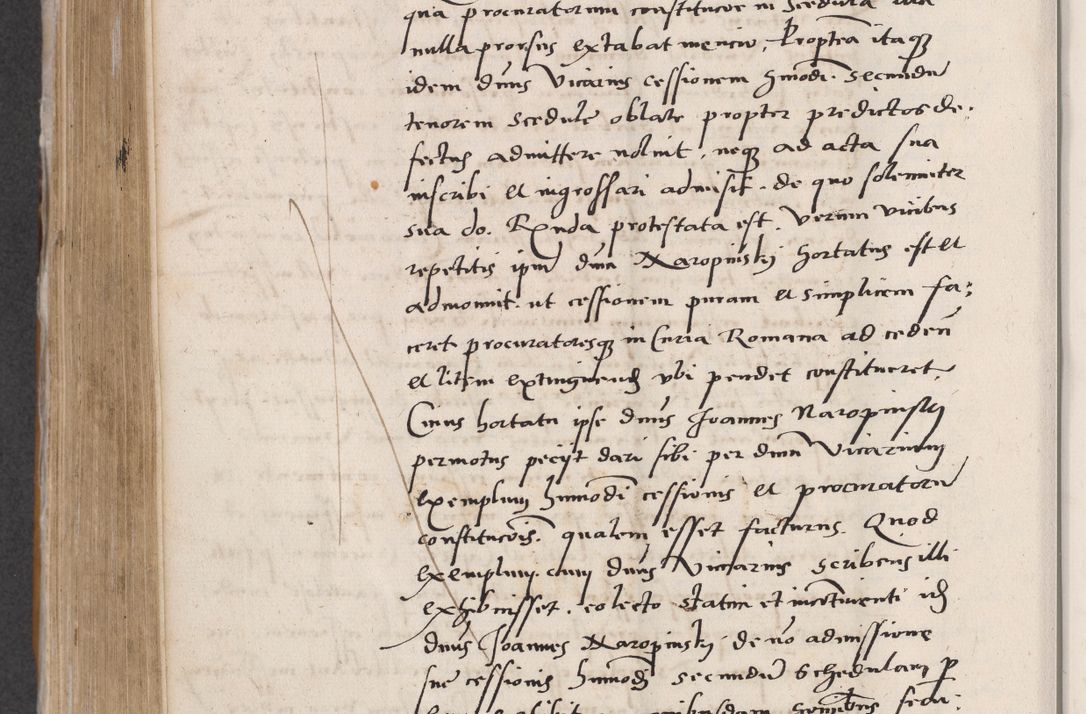 qua procuratorum constitucio in scedula illa
nulla prorsus extabat mencio, Proptea itaqȝ
idem dnus Vicarius cessionem hmodi. secundu
tenorem scedule oblate propter predictos de,
fectus admittere noluit, neqȝ ad acta sua
inscribi et ingrossari admisit. de quo solenniter
sua do. Rnda protestata est. Verum vicibus
repetitis ipm dnm Naropinski hortatus est et
admonuit. ut cessionem puram et simplicem fa,
ceret procuratoresqȝ in Curia Romana ad cedend
et litem extinguend ubi pendet constitueret.
Cuius hortatu ipse dnus Joannes Naropinskj
permotus pecijt dari sibi per dnm Vicarium
exemplum hmmodi cessionis et procuratoru
constitucois. qualem esset facturus. Quod
exemplum. cum dnus Vicarius scribens illi
exhibuisset. eo lecto statim et incontinenti id
dnus Joannes Naropinskj de no admissione
sue cessionis hmmodi secundu schedulam p